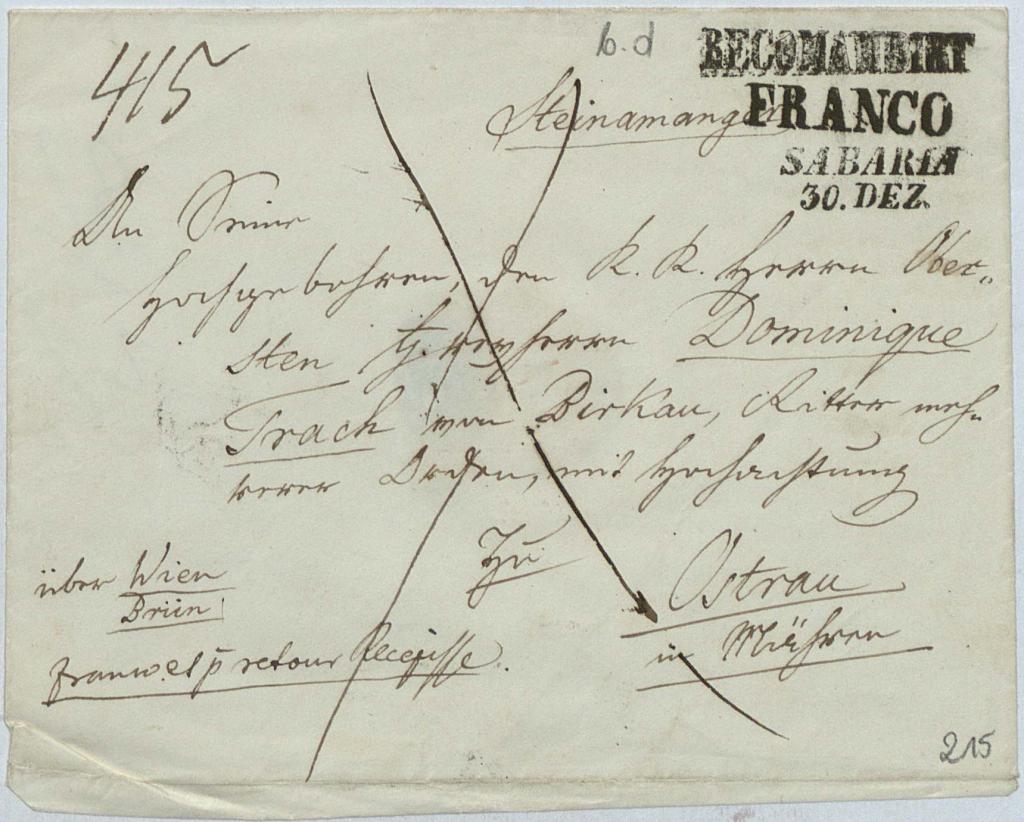 415
b.d
RECOMANDIRT
FRANCO
SABARIA
30. DEZ.
Steinamanger
An Seine
Hochgebohren, den K. K. Herrn Ober-
sten Freyherrn Dominique
Trach von Birkau, Ritter meh-
rerer Orden, mit Hochachtung
zu
Ostrau
in Mähren
über Wien
Brün
retour Recepisse.
215